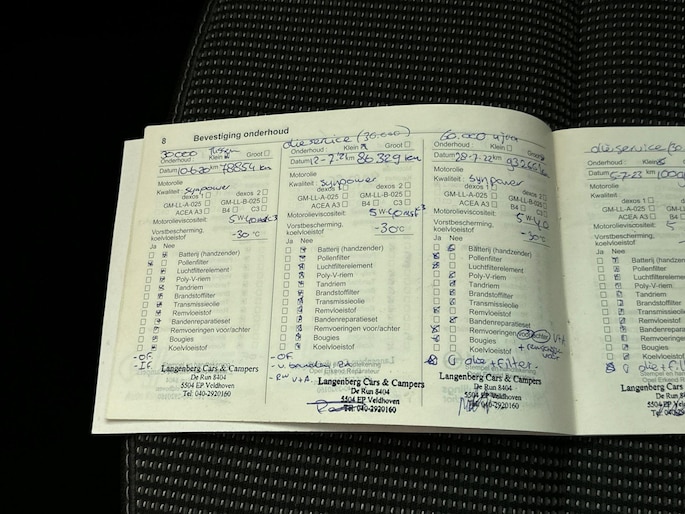 8 Bevestiging onderhoud
30.000
Onderhoud: Klein Groot
Datum 10-6-20 km 78654 km
Motorolie
Kwaliteit: Synpower
dexos 1 dexos 2
GM-LL-A-025 GM-LL-B-025
ACEA A3 B4 C3
Motorolieviscositeit: 5W40
Vorstbescherming,
koelvloeistof -30°C
Ja Nee
Batterij (handzender)
Pollenfilter
Luchtfilterelement
Poly-V-riem
Tandriem
Brandstoffilter
Transmissieolie
Remvloeistof
Bandenreparatieset
Remvoeringen voor/achter
Bougies
Koelvloeistof
-OF
-IF
Langenberg Cars & Campers
De Run 8404
5504 EP Veldhoven
Tel: 040-2920160
olieservice (30.000)
Onderhoud: Klein Groot
Datum 12-7-21 km 86329 km
Motorolie
Kwaliteit: Synpower
dexos 1 dexos 2
GM-LL-A-025 GM-LL-B-025
ACEA A3 B4 C3
Motorolieviscositeit: 5W40
Vorstbescherming,
koelvloeistof -30°C
Ja Nee
Batterij (handzender)
Pollenfilter
Luchtfilterelement
Poly-V-riem
Tandriem
Brandstoffilter
Transmissieolie
Remvloeistof
Bandenreparatieset
Remvoeringen voor/achter
Bougies
Koelvloeistof
-OF
V+A
Opel Erkend Reparateur
Langenberg Cars & Campers
De Run 8404
5504 EP Veldhoven
Tel: 040-2920160
60.000
Onderhoud: Klein Groot
Datum 28-7-22 km
Motorolie
Kwaliteit: Synpower
dexos 1 dexos 2
GM-LL-A-025 GM-LL-B-025
ACEA A3 B4 C3
Motorolieviscositeit: 5W40
Vorstbescherming,
koelvloeistof -30°C
Ja Nee
Batterij (handzender)
Pollenfilter
Luchtfilterelement
Poly-V-riem
Tandriem
Brandstoffilter
Transmissieolie
Remvloeistof
Bandenreparatieset
Remvoeringen voor/achter V+A
Bougies
Koelvloeistof
olie + Filter.
Langenberg Cars & Campers
De Run 8404
5504 EP Veldhoven
Tel: 040-2920160
olieservice
Onderhoud: Klein
Datum 5-7-23 km
Motorolie
Kwaliteit: Synpower
dexos 1
GM-LL-A-025
ACEA A3
Motorolieviscositeit:
Vorstbescherming,
koelvloeistof
Ja Nee
Pollenfilter
Tandriem
Bougies
Koelvloeistof
olie +
Langenberg Cars
De Run
5504 EP